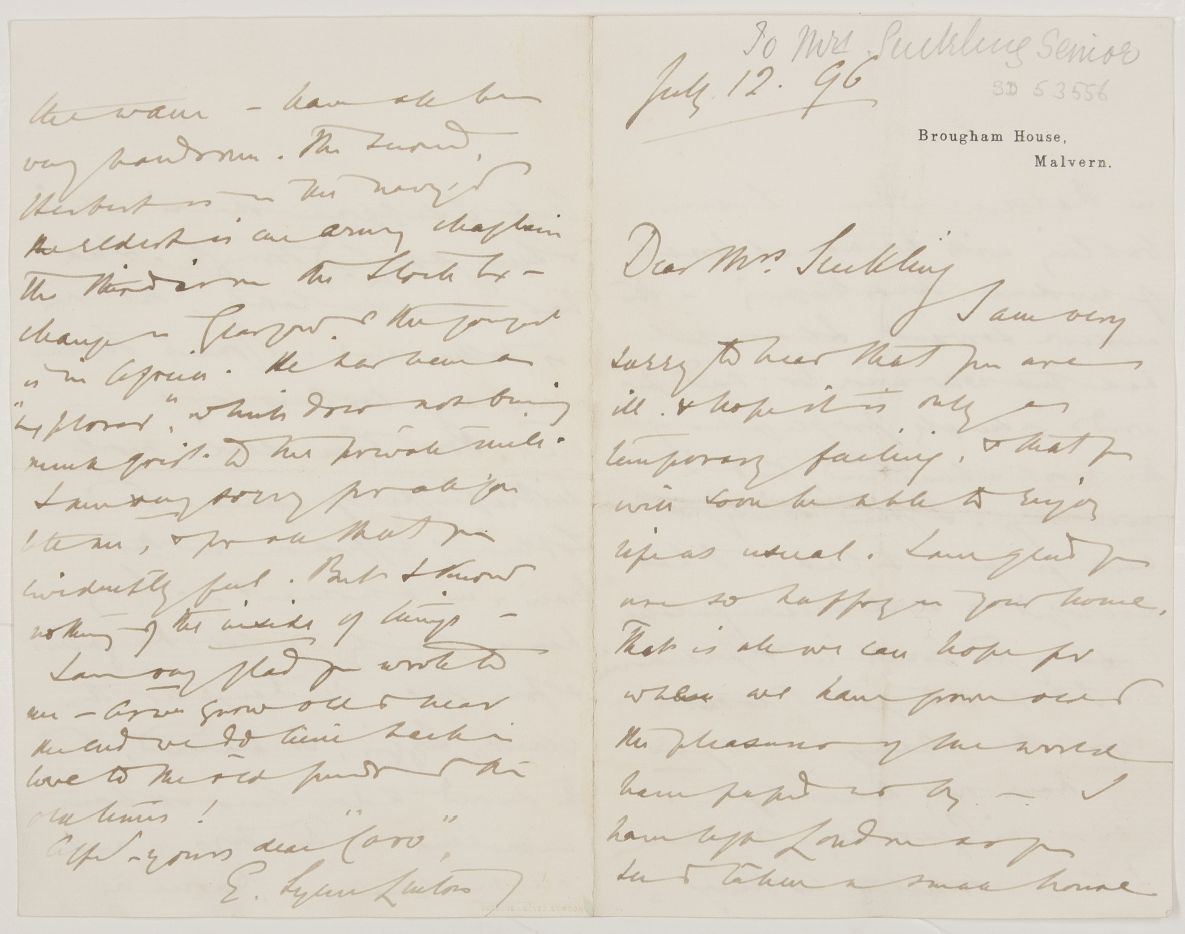 To Mrs Suckling Senior
SD 53556
July 12. 96
Brougham House,
Malvern.
Dear Mrs. Suckling
I am very
sorry to hear that you are
ill. & hope it is only a
temporary failing, & that you
will soon be able to enjoy
life as usual. I am glad you
are so happy in your home.
That is all we can hope for
when we have grown old &
the pleasures of the world
have passed us by — I
have left London as you
see & taken a small house
the same — have all been
very handsome. The second,
Herbert is in the navy, &
the eldest is an army chaplain
the third is on the Stock Ex-
change in Glasgow & the youngest
is in Africa. He has been an
"explorer", which does not bring
much grist to the private mill.
I am very sorry for all you
tell me, & for all that you
evidently feel. But I know
nothing of the inside of things —
I am very glad you wrote to
me — As we grow old & near
the end we do turn back in
love to the old friends & the
old times!
Affly yours dear "Caro",
E. Lynn Linton